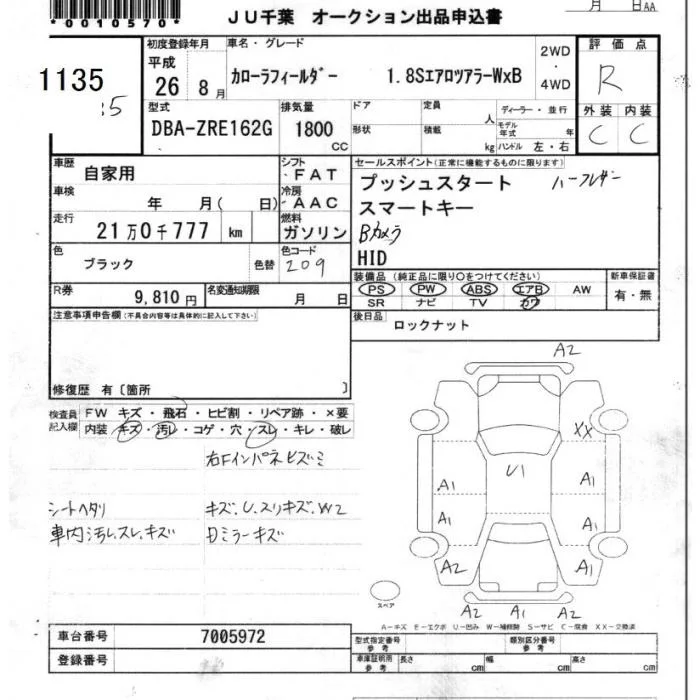 *0010570*
JU千葉 オークション出品申込書
月 日AA
1135
:5
初度登録年月 車名・グレード 2WD・4WD 評価点
平成 26 8月 カローラフィールダー 1.8SエアロツアラーWxB R
外装 内装
C C
型式 排気量 ドア 定員 人 ディーラー・並行
DBA-ZRE162G 1800 CC 形状 積載 kg モデル年式 年 ハンドル 左・右
車歴 自家用 シフト FAT
車検 年 月( 日) 冷房 AAC
走行 21万0千777 km 燃料 ガソリン
色 ブラック 色替 色コード 209
R券 9,810円 名変通知期限 月 日
セールスポイント(正常に機能するものに限ります)
プッシュスタート ハーフレザー
スマートキー
Bカメラ
HID
装備品 (純正品に限り○をつけてください) 新車保証書
PS PW ABS エアB AW 有・無
SR ナビ TV カワ
後日品 ロックナット
注意事項申告欄(不具合内容等は具体的に記入して下さい)
修復歴 有〔箇所 〕
検査員記入欄 FW キズ・飛石・ヒビ割・リペア跡・×要
内装 キズ・汚レ・コゲ・穴・スレ・キレ・破レ
右Fインパネヒズミ
シートヘタリ キズ、U、スリキズ、W2
車内汚レ、スレ、キズ Dミラーキズ
A2
XX
U1
A1 A1
A1 A1
A2 A2
A2 A1 A2
スペア
A-キズ E-エクボ U-凹み W-補修跡 S-サビ C-腐食 XX-交換済
車台番号 7005972
登録番号
型式指定番号 参考 類別区分番号 参考
車庫証明用 参考 長さ cm 幅 cm 高さ cm